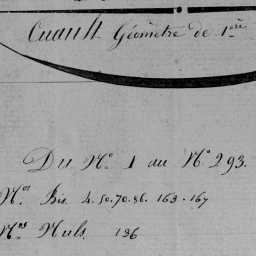 Cuault Géomètre de 1ère
Du N° 1 au N° 293.
Nos Bis 4. 50. 70. 86. 163. 167
Nos Nuls 136